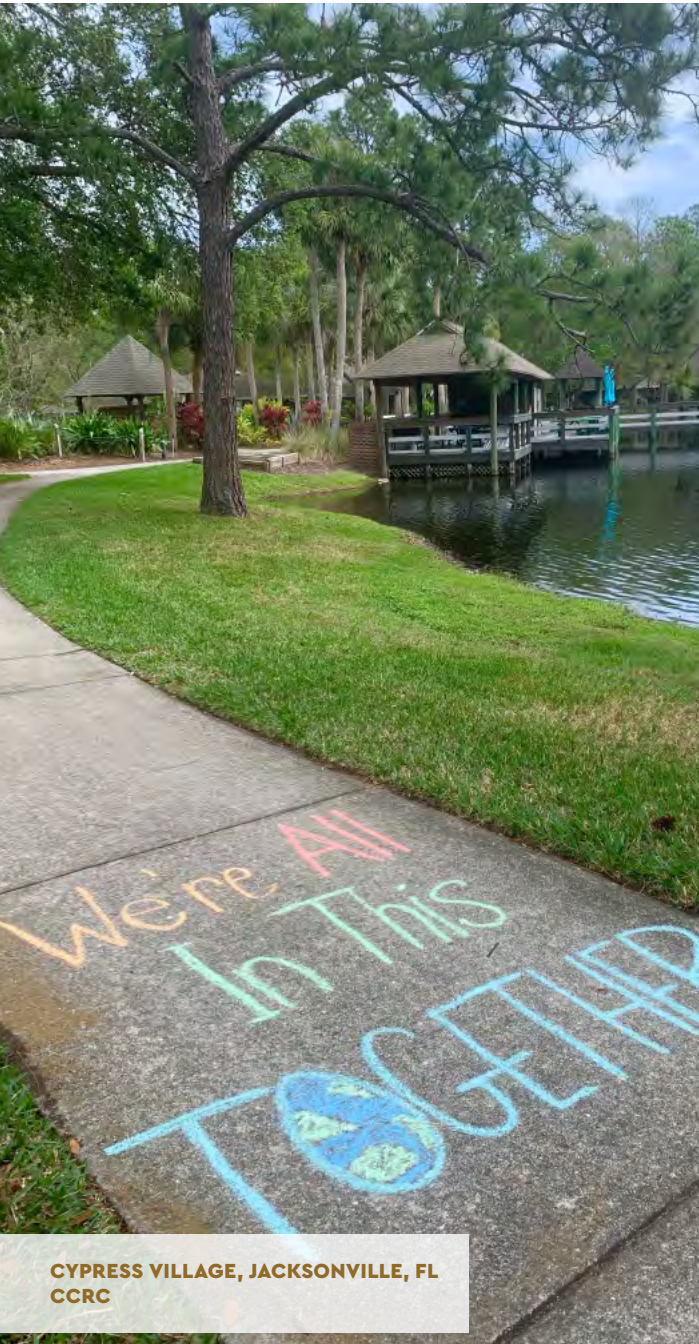 We're All
In This
TOGETHER
CYPRESS VILLAGE, JACKSONVILLE, FL
CCRC